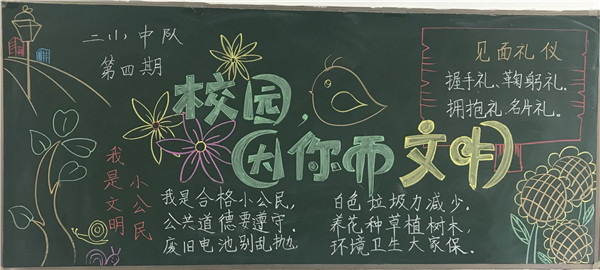 二(1)中队
第四期
校园,
因你而文明
见面礼仪
握手礼、鞠躬礼.
拥抱礼.名片礼.
我是文明
小公民
我是合格小公民,
公共道德要遵守.
废旧电池别乱抛,
白色垃圾力减少.
养花种草植树木,
环境卫生大家保.